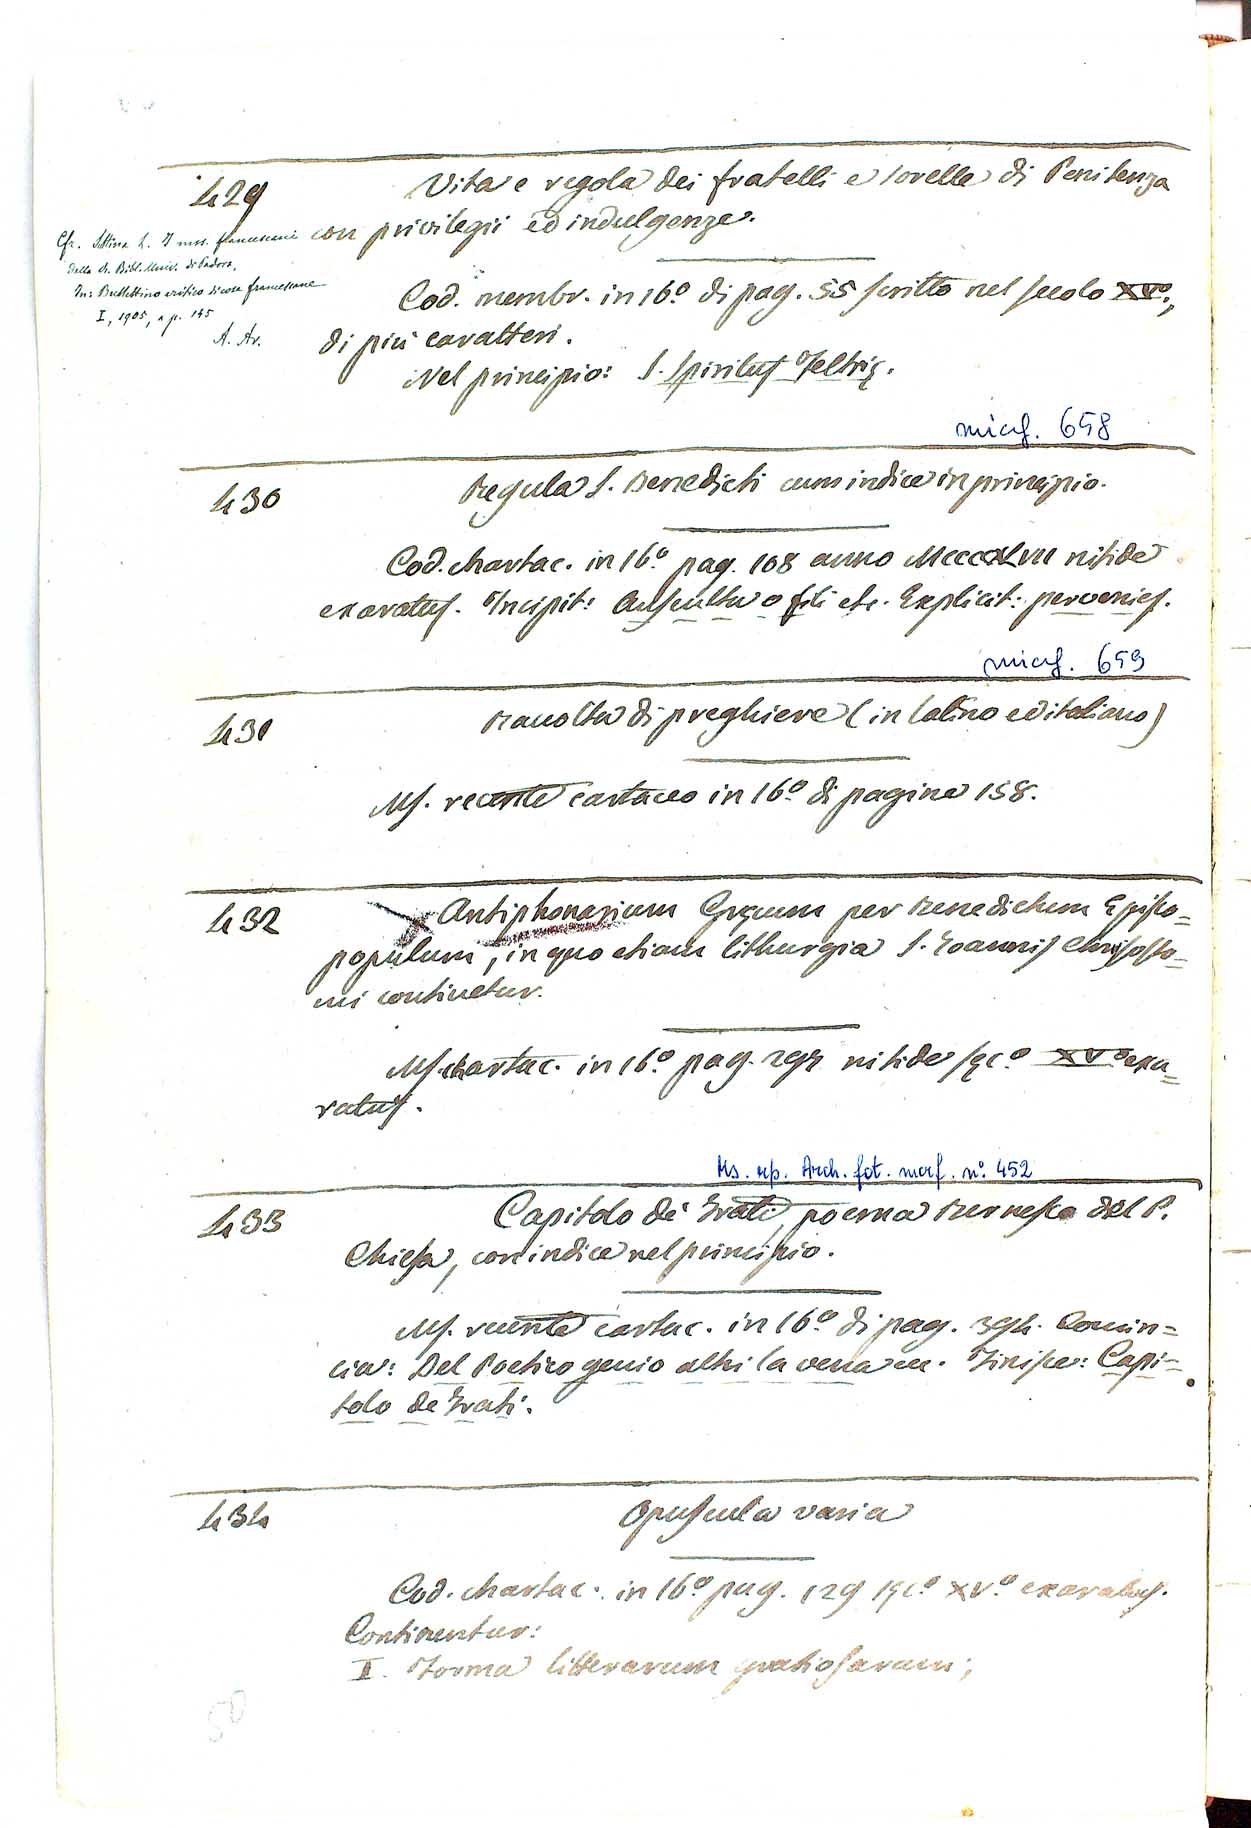 429
Vita e regola dei fratelli e sorelle di Penitenza
con privilegii ed indulgenze.
Cfr. L. I mss. francescani
della Bibl. Univ. di Padova,
In: Bullettino critico di cose francescane
I, 1905, a p. 145
A. Av.
Cod. membr. in 16.º di pag. 55 scritto nel secolo XVº.,
di più caratteri.
Nel principio: S. Spiritus Feltrię.
micf. 658
430
Regula S. Benedicti cum indice in principio.
Cod. chartac. in 16.º pag. 108 anno nitide
exaratus. Incipit: Ausculta o fili etc. Explicit: pervenies.
micf. 659
431
Raccolta di preghiere (in latino ed italiano)
Ms. recente cartaceo in 16.º di pagine 158.
432
Antiphonarium Gręcum per Benedictum Episco=
populum, in quo etiam lithurgia S. Ioannis Chrisosto=
mi continetur.
Ms. chartac. in 16.º pag. nitide sęc.º XVº exa=
ratus.
Ms. rip. Arch. fot. micf. nº. 452
433
Capitolo de' Frati, poema Bernesco del P.
Chiesa, con indice nel principio.
Ms. recente cartac. in 16.º di pag. 394. Comin=
cia: Del Poetico genio altri la vena ec. Finisce: Capi=
tolo de Frati.
434
Opuscula varia
Cod. chartac. in 16.º pag. 129 sęc.º XVº exaratus.
Continentur:
I. Forma litterarum gratiosarum;
50